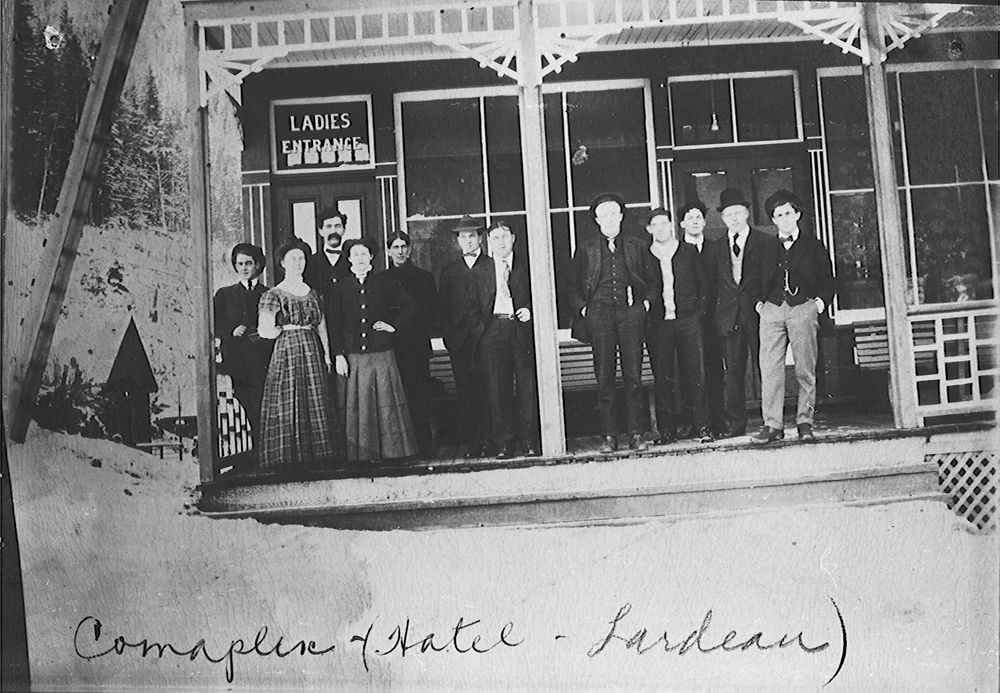 LADIES
ENTRANCE
Comaplix & Hotel - Lardeau)